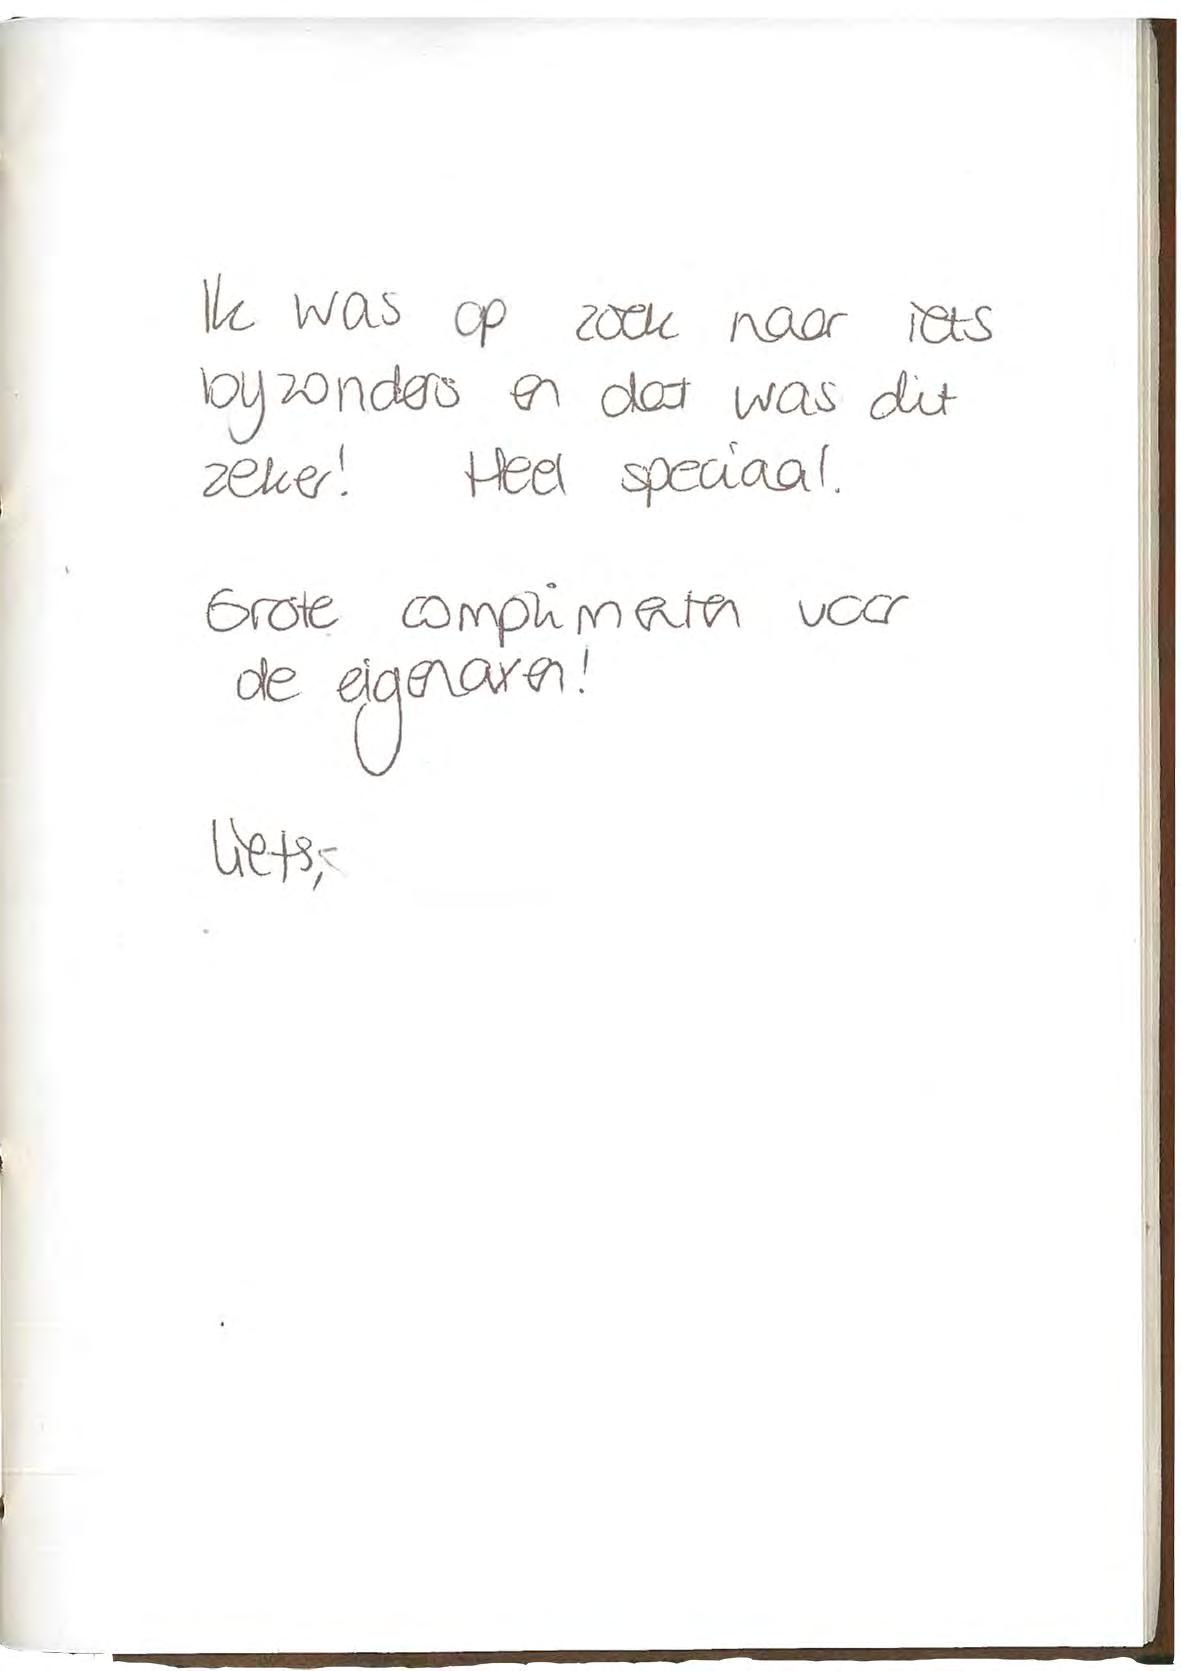 Ik was op zoek naar iets
byzonders en dat was dit
zeker! Heel speciaal.
Grote complimenten voor
de eigenaren!
Liets,-